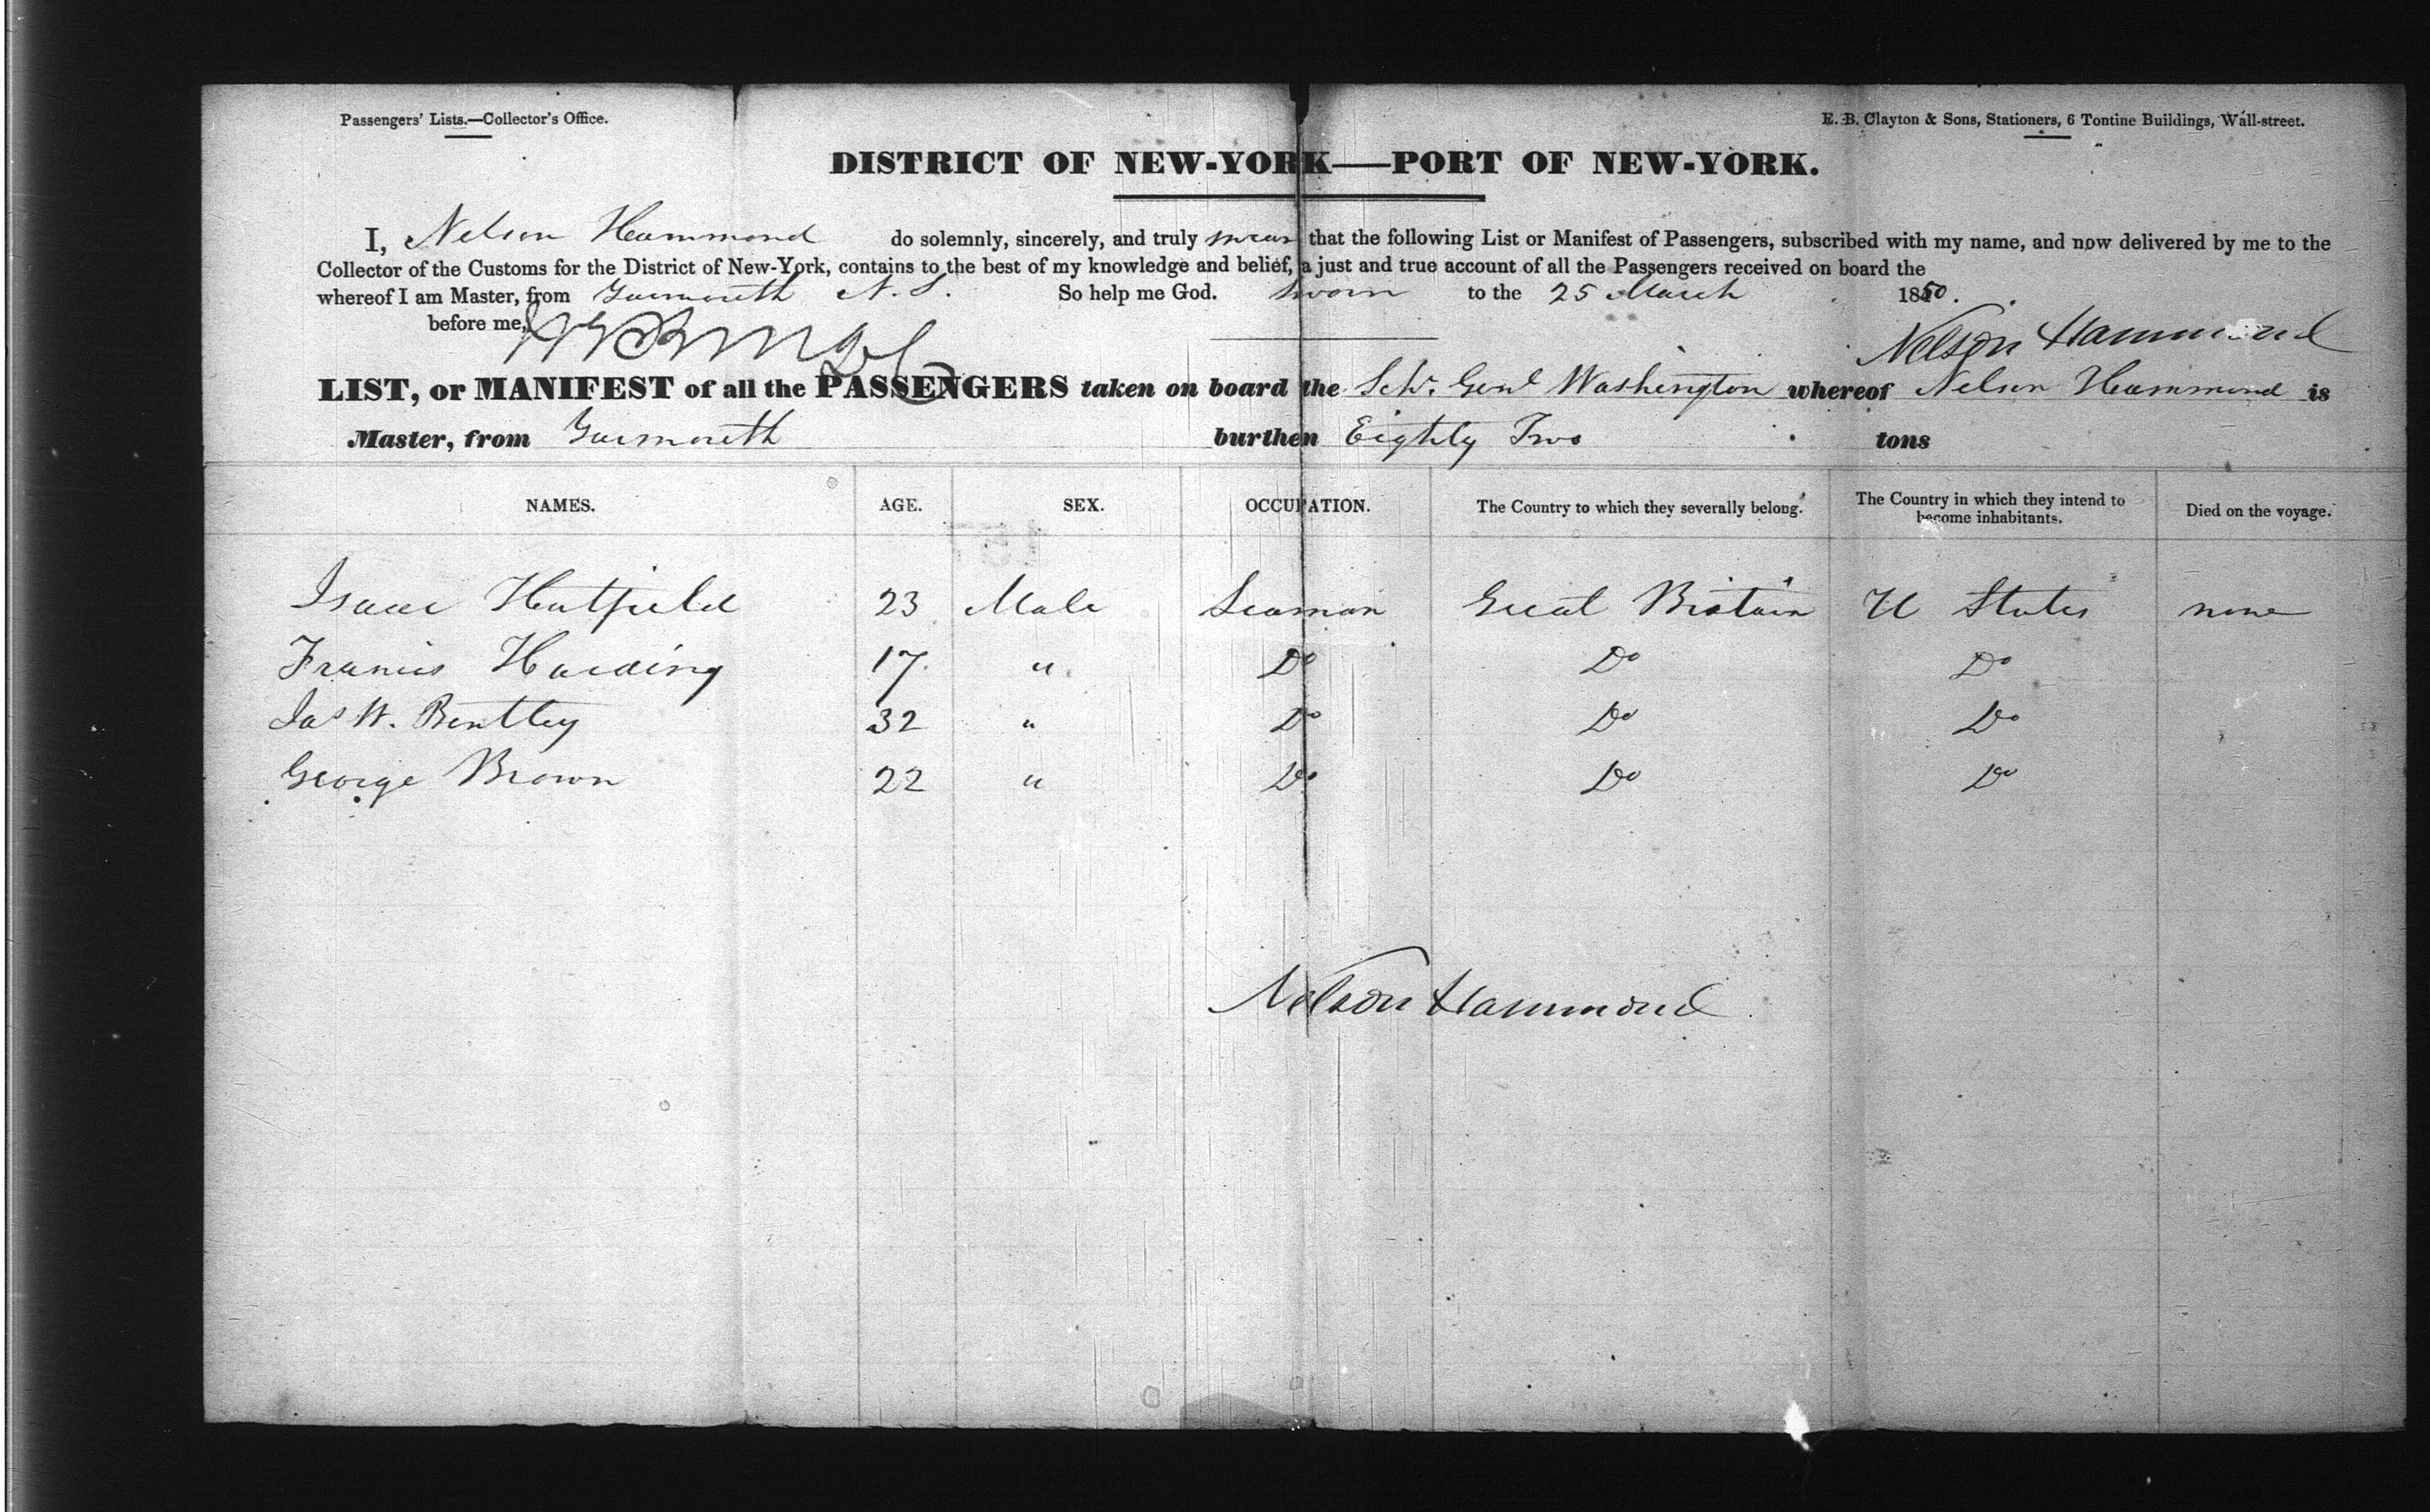 Passengers' Lists.—Collector's Office.
E. B. Clayton & Sons, Stationers, 6 Tontine Buildings, Wall-street.
DISTRICT OF NEW-YORK—PORT OF NEW-YORK.
I, Nelson Hammond do solemnly, sincerely, and truly swear that the following List or Manifest of Passengers, subscribed with my name, and now delivered by me to the
Collector of the Customs for the District of New-York, contains to the best of my knowledge and belief, a just and true account of all the Passengers received on board the
whereof I am Master, from Yarmouth N.S. So help me God. Sworn to the 25 March 1850.
before me,
Nelson Hammond
LIST, or MANIFEST of all the PASSENGERS taken on board the Schr. Genl Washington whereof Nelson Hammond is
Master, from Yarmouth burthen Eighty Two tons
NAMES. AGE. SEX. OCCUPATION. The Country to which they severally belong. The Country in which they intend to become inhabitants. Died on the voyage.
Isaac Hatfield 23 Male Seaman Great Britain U States none
Francis Harding 17 " Do Do Do
Jas W. Bentley 32 " Do Do Do
George Brown 22 " Do Do Do
Nelson Hammond